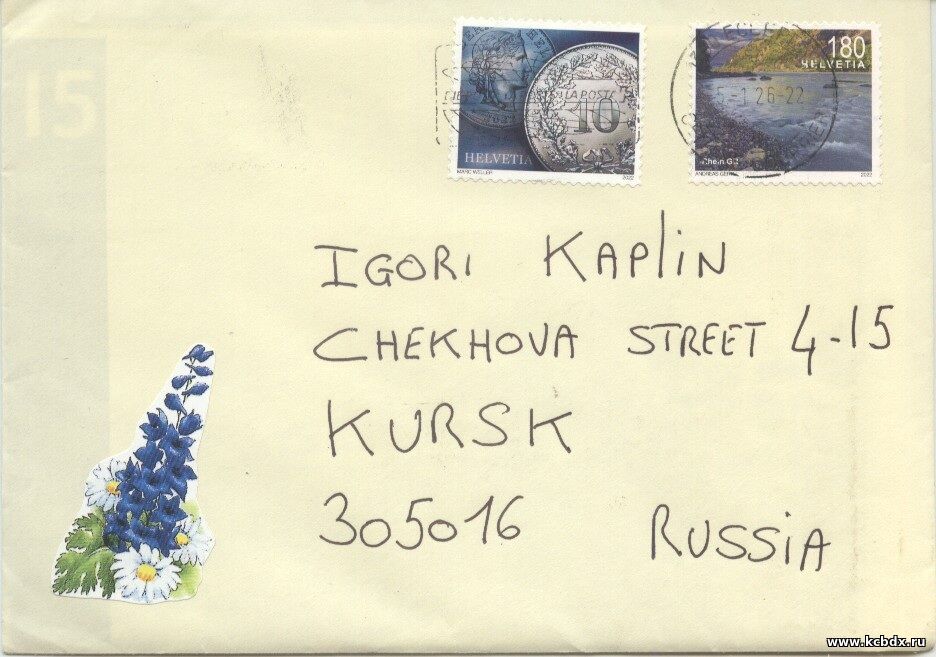 15
HELVETIA
10
MARC WELLER
2022
180
HELVETIA
26-22
ANDREAS GERTH
2022
IGORI KAPLIN
CHEKHOVA STREET 4-15
KURSK
305016
RUSSIA
www.kcbdx.ru